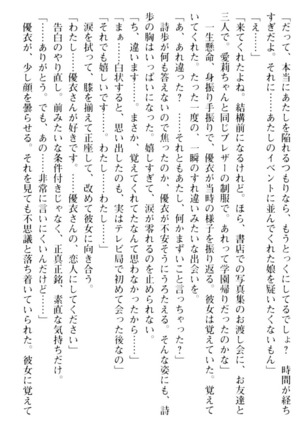 「だって、本当にあたしを陥れるつもりなら、もうとっくにしてるでしょ？　時間が経ち
すぎだよ。それに……あたしのイベントに並んでくれた娘を疑いたくないもん」
「え……」
「来てくれたよね。結構前になるけれど。ほら、書店での写真集のお渡し会に、お友達と
三人で。愛莉ちゃんと同じブレザーの制服で、あれって学園帰りだったのかな」
　一生懸命、身振り手振りで、優衣が当時の様子を振り返る。彼女は覚えていた。覚えて
いてくれた。たった一度の、一瞬のすれ違いみたいな出会いを。
「あ、あれ違った？　……それともあたし、何かまずいこと言っちゃった？」
　詩歩が何も答えないので焦ったのか、優衣が不安そうにうろたえる。そんな姿にも、詩
歩の胸はいっぱいになった。嬉しすぎて、涙が零れるのを止められない。
「ち、違います……。まさか、覚えてくれてたなんて思わなかったから……」
「まぁ……白状すると、思い出したのも、実はテレビ局で初めて会った後なの」
「それでも嬉しいです……。わたし……わたし……」
　涙を拭って、膝を揃えて正座して、改めて彼女に向き合う。
「わたし……優衣さんが好きです。……優衣さんの、恋人にしてください」
　告白のやり直し。前みたいな条件付きじゃなく、正真正銘、素直な気持ちだけ。
「……ありがとう。でも、あの……非常に言いにくいんだけど……」
　優衣が、少し顔を曇らせる。それを見ても不思議と落ち着いていられた。彼女に覚えて